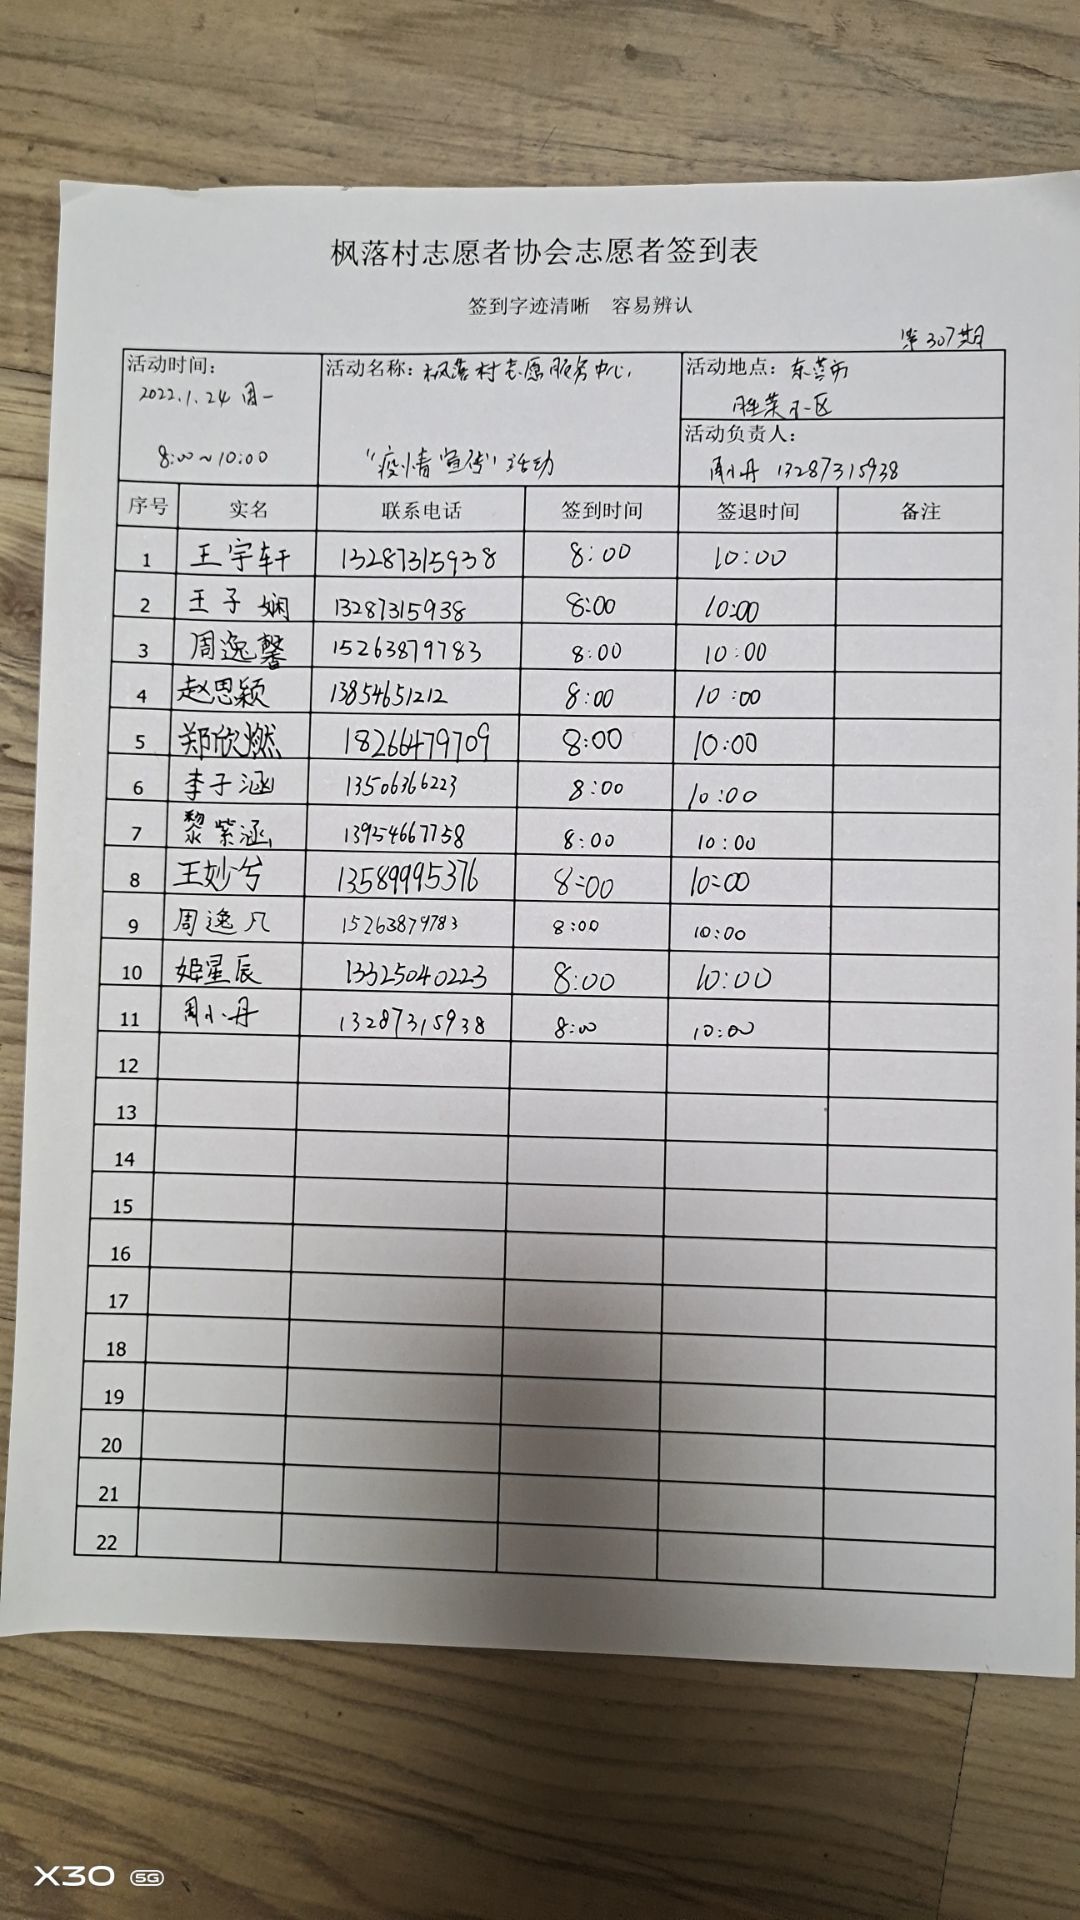 枫落村志愿者协会志愿者签到表
签到字迹清晰 容易辨认
第307期
活动时间： 活动名称：枫落村志愿服务中心， 活动地点：东营市
2022.1.24 周一 胜莱小区
活动负责人：
8:00～10:00 “疫情宣传”活动 周小丹 13287315938
序号 实名 联系电话 签到时间 签退时间 备注
1 王宇轩 13287315938 8:00 10:00
2 王子娴 13287315938 8:00 10:00
3 周逸馨 15263879783 8:00 10:00
4 赵思颖 13854651212 8:00 10:00
5 郑欣燃 18266479709 8:00 10:00
6 李子涵 13506366223 8:00 10:00
7 黎紫涵 13954667758 8:00 10:00
8 王妙兮 13589995376 8:00 10:00
9 周逸凡 15263879783 8:00 10:00
10 姬星辰 13325040223 8:00 10:00
11 周小丹 13287315938 8:00 10:00
12
13
14
15
16
17
18
19
20
21
22
X30 5G